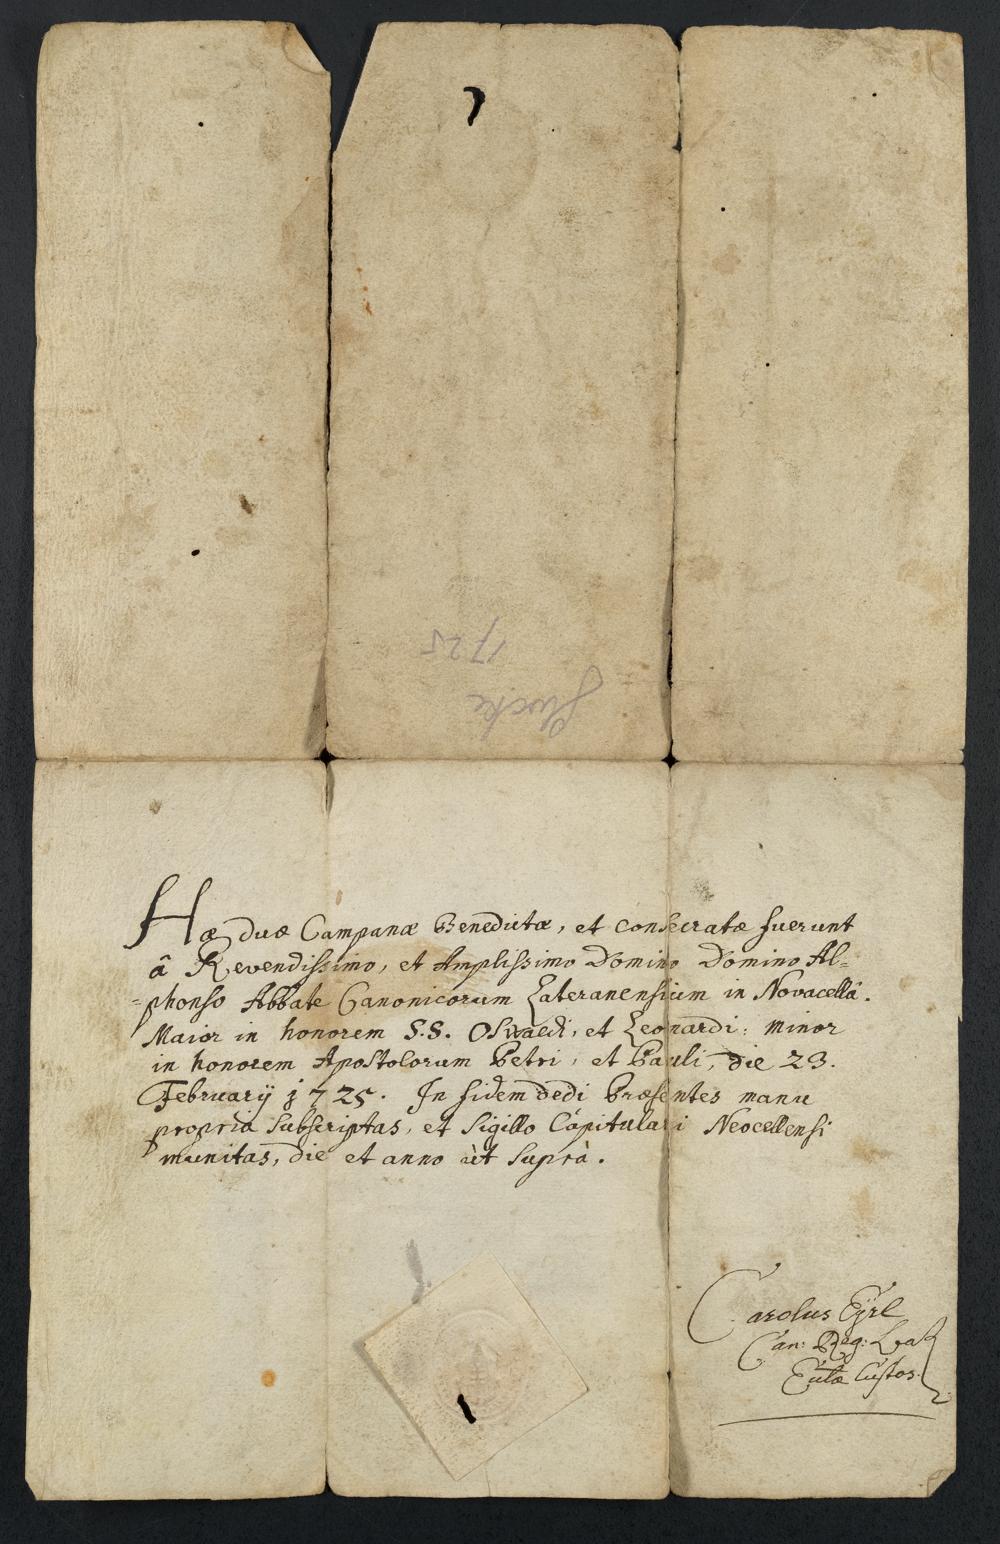 Glocke
1725
Hæ duæ Campanæ Benedictæ, et consecratæ fuerunt
â Revendissimo, et Amplissimo Domino Domino Al=
=phonso Abbate Canonicorum Lateranensium in Novacellâ.
Maior in honorem S.S. Oswaldi, et Leonardi: minor
in honorem Apostolorum Petri, et Pauli, die 23.
February 1725. In fidem dedi Præsentes manu
propria subscriptas, et Sigillo Capitulari Neocellensi
munitas, die et anno ùt suprà.
Carolus Eyrl
Can: Reg: Lat
Custos.